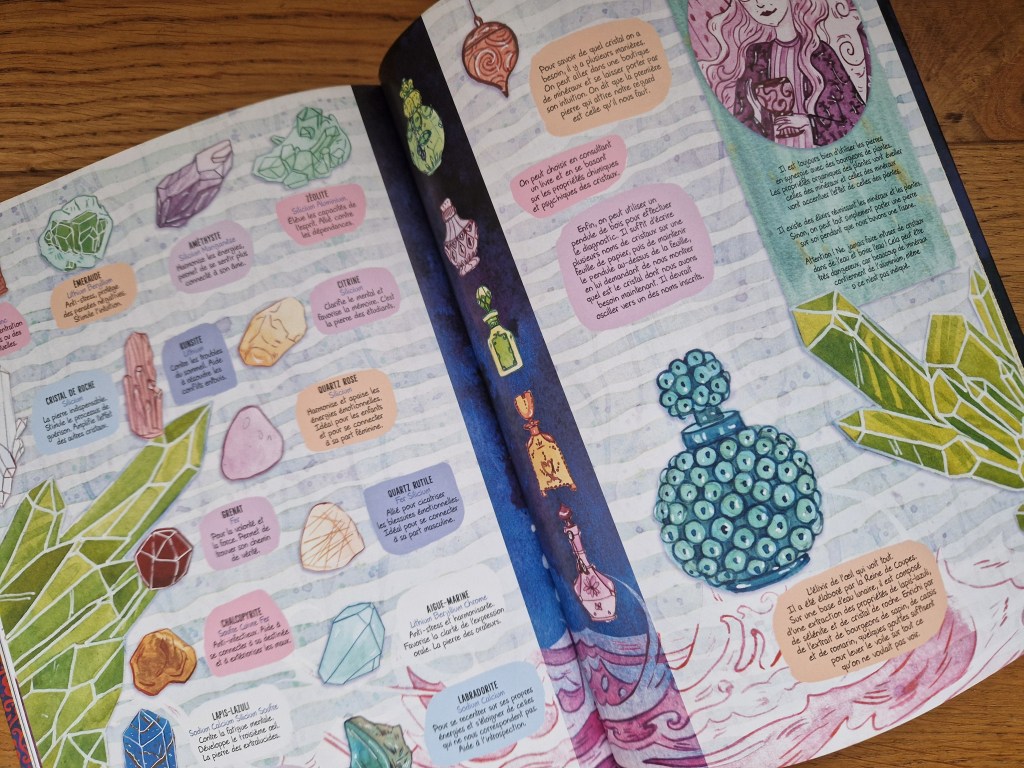 ZÉOLITE
Silicium Aluminium
Élève les capacités de
l'esprit. Allié contre
les dépendances.
AMÉTHYSTE
Silicium Manganèse
Harmonise les énergies,
permet de se sentir plus
connecté à son âme.
ÉMERAUDE
Lithium Béryllium
Anti-stress, protège
des pensées négatives.
Stimule l'intuition.
CITRINE
Silicium
Clarifie le mental et
favorise la mémoire. C'est
la pierre des étudiants.
KUNZITE
Lithium
Contre les troubles
du sommeil. Aide
à résoudre les
conflits enfouis.
CRISTAL DE ROCHE
Silicium
La pierre indispensable.
Stimule le processus de
guérison. Amplifie l'effet
des autres cristaux.
QUARTZ ROSE
Silicium
Harmonise et apaise les
énergies émotionnelles.
Idéal pour les enfants
et pour se connecter
à sa part féminine.
QUARTZ RUTILE
Fer Silicium
Allié pour cicatriser
les blessures émotionnelles.
Idéal pour se connecter
à sa part masculine.
GRENAT
Fer
Pour la volonté et
la force. Permet de
trouver son chemin
de vérité.
AIGUE-MARINE
Lithium Béryllium Chrome
Anti-stress et harmonisante.
Favorise la clarté de l'expression
orale. La pierre des orateurs.
CHALCOPYRITE
Soufre Cuivre Fer
Anti-infectieux. Aide à
se connecter à sa destinée
et à extérioriser les maux.
LABRADORITE
Sodium Calcium
Pour se recentrer sur ses propres
énergies et s'éloigner de celles
qui ne nous correspondent pas.
Aide à l'introspection.
LAPIS-LAZULI
Sodium Calcium Silicium Soufre
Contre la fatigue mentale.
Développe le troisième œil.
La pierre des extralucides.
Pour savoir de quel cristal on a
besoin, il y a plusieurs manières.
On peut aller dans une boutique
de minéraux et se laisser porter par
son intuition. On dit que la première
pierre qui attire notre regard
est celle qu'il nous faut.
On peut choisir en consultant
un livre et en se basant
sur les propriétés chimiques
et psychiques des cristaux.
Enfin, on peut utiliser un
pendule de bois pour effectuer
le diagnostic. Il suffit d'écrire
plusieurs noms de cristaux sur une
feuille de papier, puis de maintenir
le pendule au-dessus de la feuille,
en lui demandant de nous montrer
quel est le cristal dont nous avons
besoin maintenant. Il devrait
osciller vers un des noms inscrits.
Il est toujours bien d'utiliser les pierres
en synergie avec des bourgeons de plantes.
Les propriétés organiques des plantes vont éveiller
celles des minéraux et celles des minéraux
vont accentuer l'effet de celles des plantes.
Il existe des élixirs réunissant les minéraux et les plantes.
Sinon, on peut tout simplement porter une pierre
sur soi pendant que nous buvons une tisane.
Attention ! Ne jamais faire infuser de cristaux
dans de l'eau et boire cela ! Cela peut être
très dangereux, car beaucoup de minéraux
contiennent de l'aluminium, même
si ce n'est pas indiqué.
L'élixir de l'œil qui voit tout.
Il a été élaboré par la Reine de Coupes.
Sur une base d'eau lunaire, il est composé
d'une extraction des propriétés de lapis-lazuli,
de sélénite et de cristal de roche. Enrichi par
de l'extrait de bourgeons de sapin, de cassis
et de romarin, quelques gouttes suffisent
pour lever le voile sur tout ce
qu'on ne voulait pas voir.